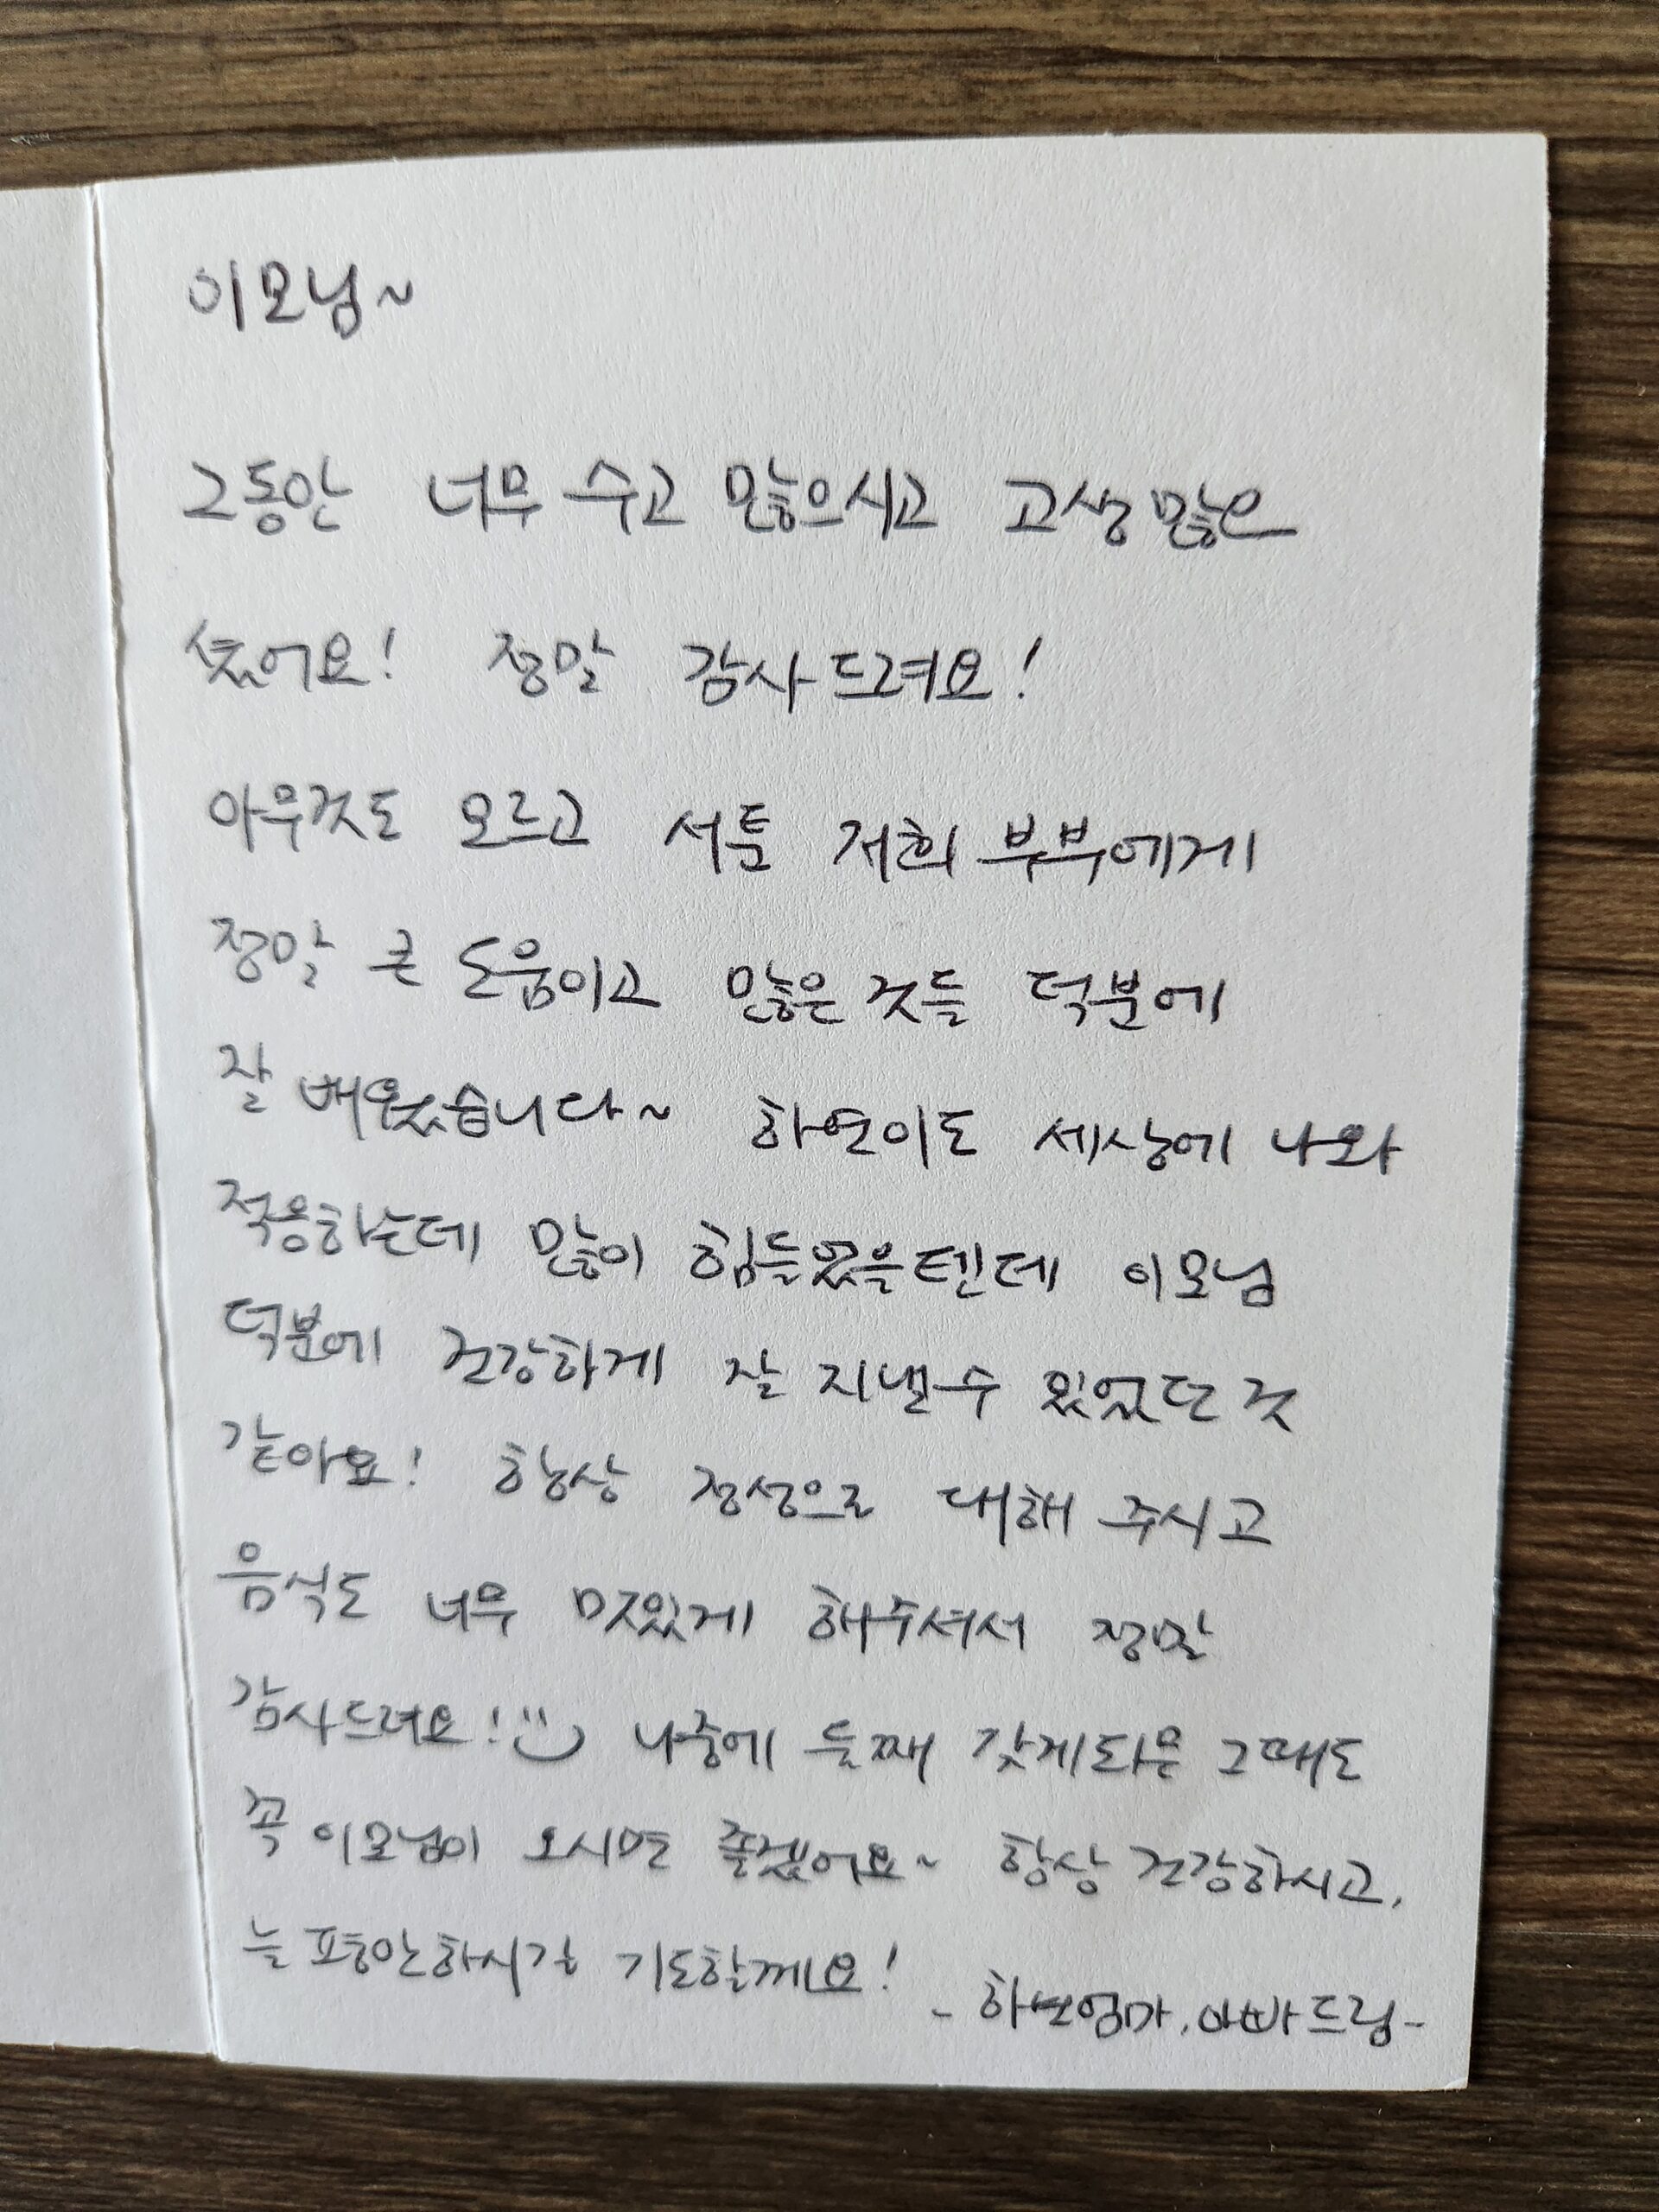 이모님~
그동안 너무 수고 많으시고 고생 많으
셨어요! 정말 감사드려요!
아무것도 모르고 서툰 저희 부부에게
정말 큰 도움이고 많은 것들 덕분에
잘 배웠습니다~ 하연이도 세상에 나와
적응하는데 많이 힘들었을텐데 이모님
덕분에 건강하게 잘 지낼 수 있었던 것
같아요! 항상 정성으로 대해 주시고
음식도 너무 맛있게 해주셔서 정말
감사드려요! 나중에 둘째 갖게되믄 그때도
꼭 이모님이 오시면 좋겠어요~ 항상 건강하시고,
늘 평안하시길 기도할께요!
- 하연엄마, 아빠 드림 -